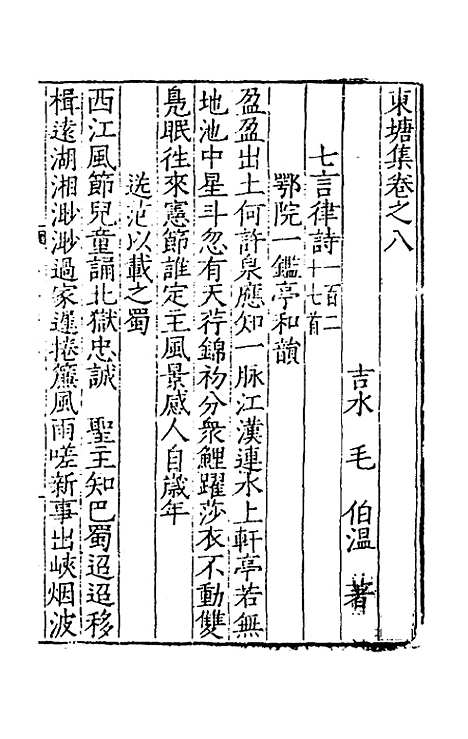 東塘集卷之八
吉水 毛 伯温 著
七言律詩一百二十七首
鄂院一鑑亭和韻
盈盈出土何許泉應知一脉江漢連水上軒亭若無
地池中星斗忽有天荇錦初分衆鯉躍莎衣不動雙
鳧眠往來憲節誰定主風景感人自歲年
送范以載之蜀
西江風節兒童誦北獄忠誠 聖主知巴蜀迢迢移
楫遠湖湘渺渺過家遲捲簾風雨嗟新事出峽烟波